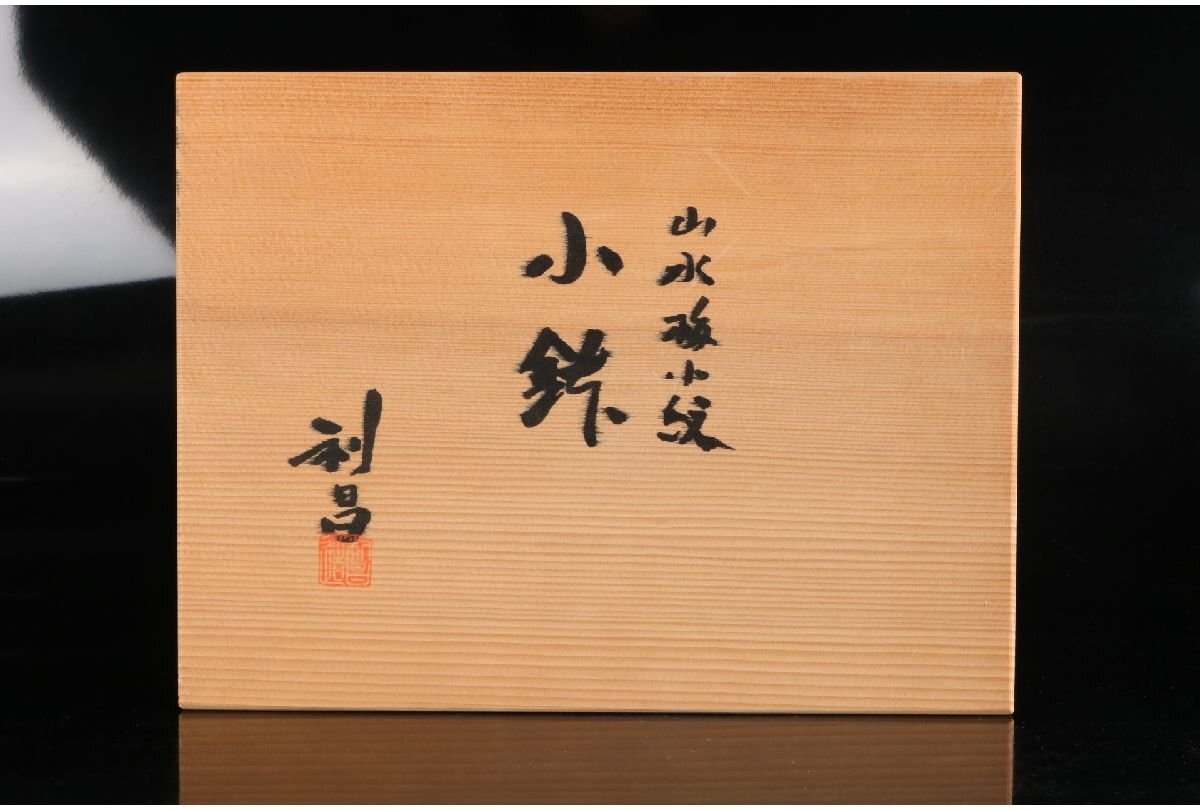 山水梅小紋
小鉢
利昌